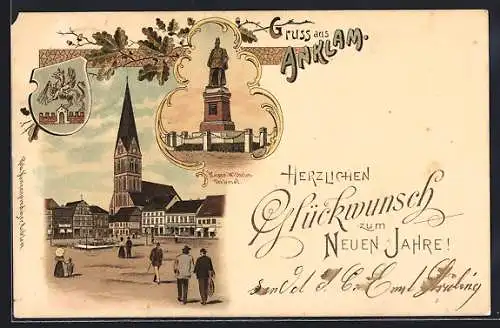 Gruss aus
ANKLAM.
Kaiser Wilhelm
Denkmal
HERZLICHEN
Glückwunsch
zum
NEUEN JAHRE!